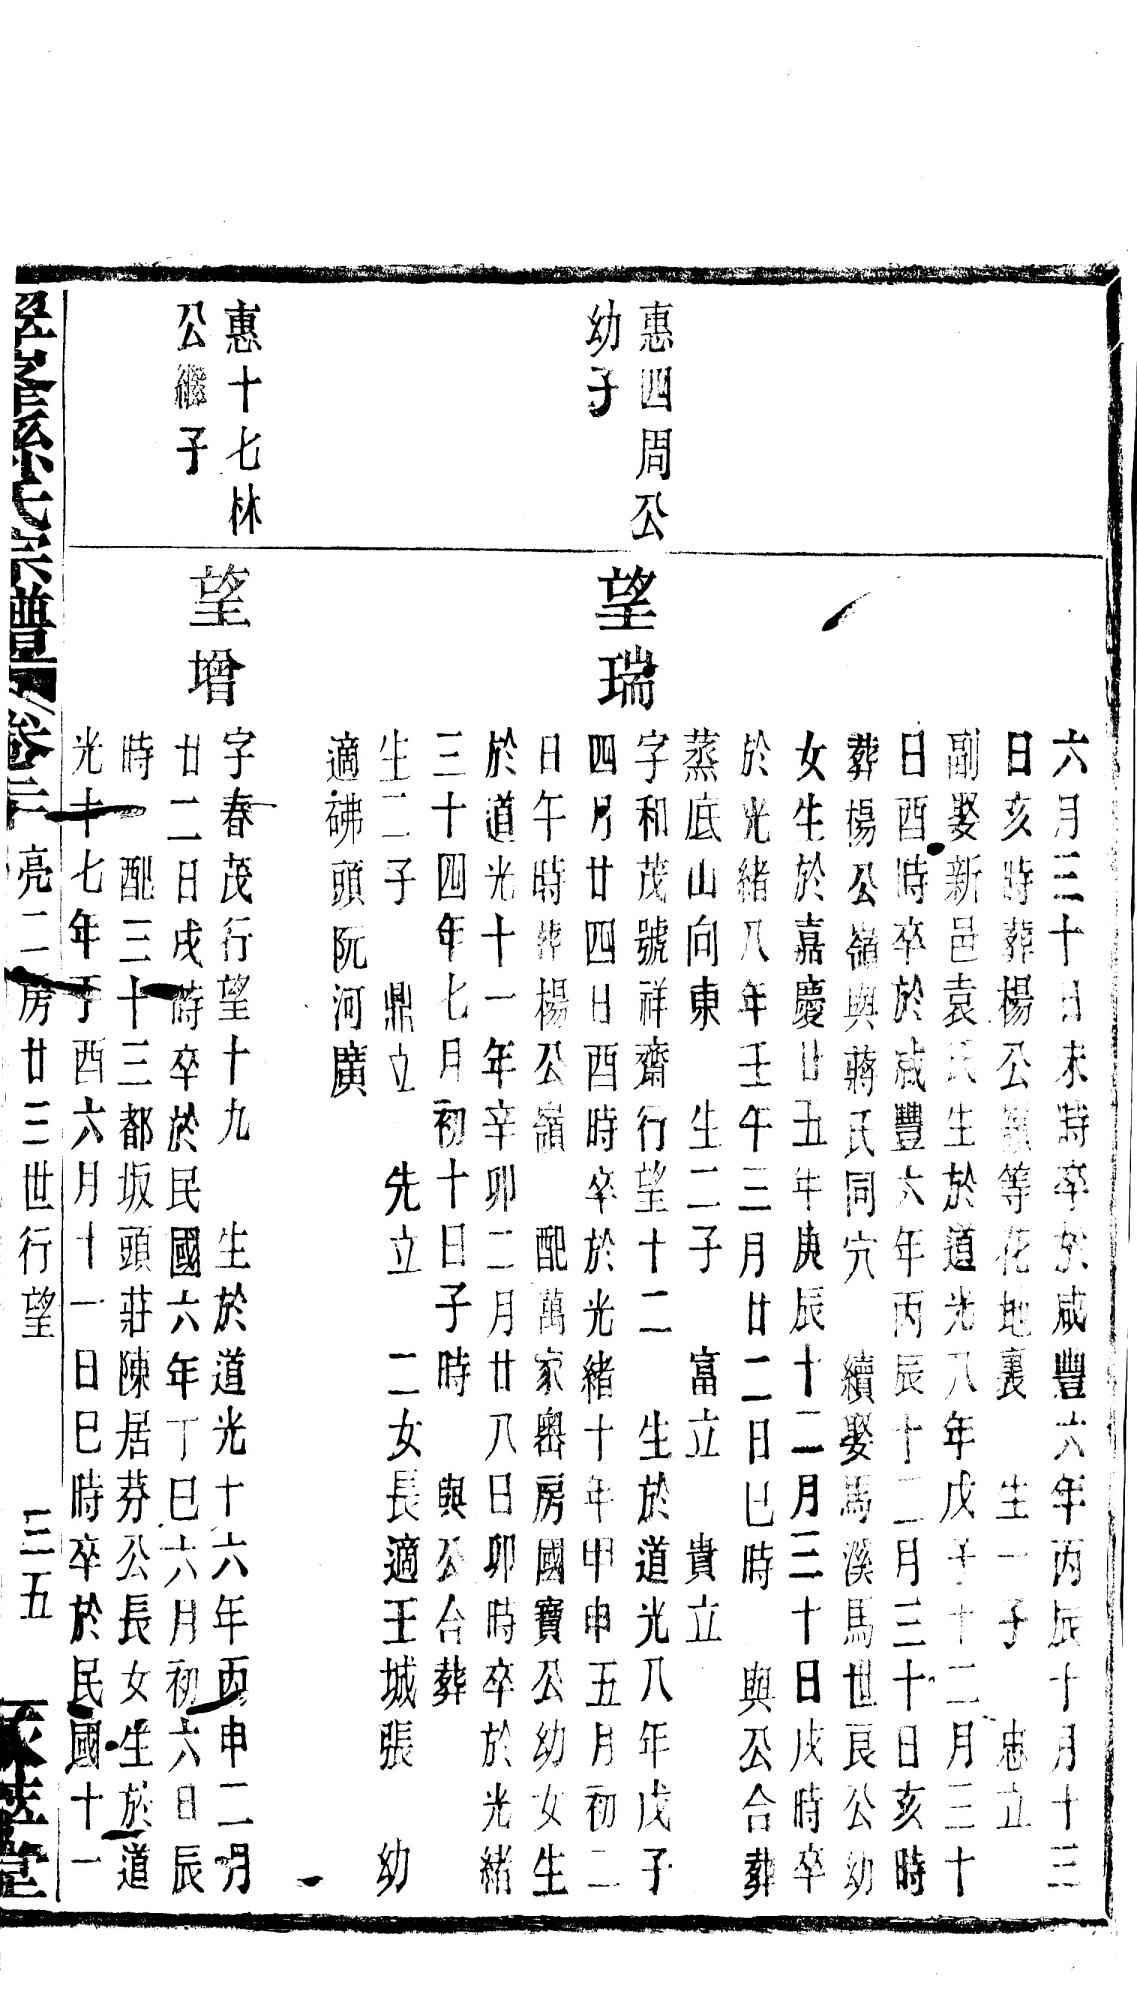 六月三十日未時卒於咸豐六年丙辰十月十三
日亥時葬楊公嶺等花地裏　生一子　忠立
副娶新邑袁氏生於道光八年戊子十二月三十
日酉時卒於咸豐六年丙辰十二月三十日亥時
葬楊公嶺與蔣氏同穴　續娶馬溪馬世良公幼
女生於嘉慶廿五年庚辰十二月三十日戌時卒
於光緒八年壬午三月廿二日巳時　與公合葬
蒸底山向東　生二子　富立　貴立
惠四周公
幼子
望瑞
字和茂號祥齋行望十二　生於道光八年戊子
四月廿四日酉時卒於光緒十年甲申五月初二
日午時葬楊公嶺　配萬家嶴房國寶公幼女生
於道光十一年辛卯二月廿八日卯時卒於光緒
三十四年七月初十日子時　與公合葬
生二子　鼎立　先立　二女長適王城張　幼
適砩頭阮河廣
惠十七林
公繼子
望增
字春茂行望十九　生於道光十六年丙申二月
廿二日戌時卒於民國六年丁巳六月初六日辰
時　配三十三都坂頭莊陳居芬公長女生於道
光十七年丁酉六月十一日巳時卒於民國十一
孫氏宗譜　卷二　亮二房廿三世行望　三五　堂